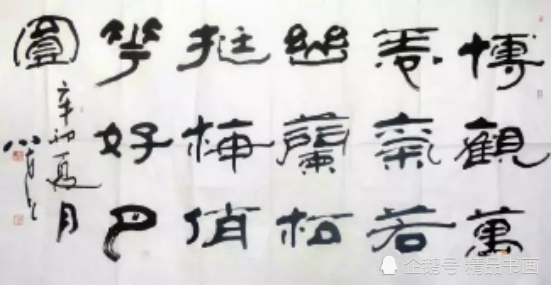 博觀萬
卷氣若
幽蘭松
挺梅俏
花好月
圓
辛卯夏月
企鹅号 精品书画